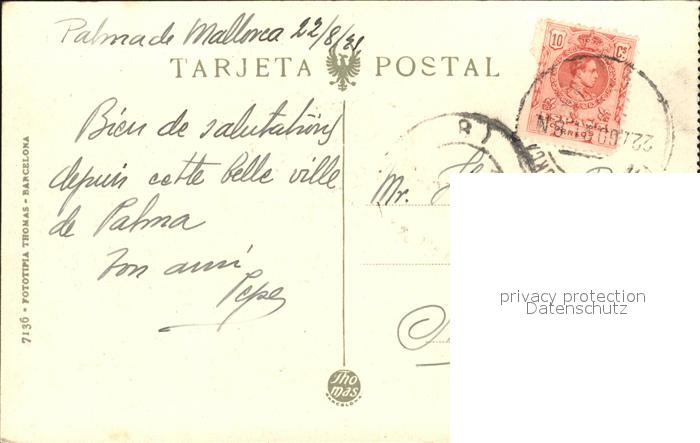 Palma de Mallorca 22/8/21
TARJETA POSTAL
10 Cs
Bien de salutations
depuis cette belle ville
de Palma
ton ami
Pepe
Mr.
7136 - FOTOTIPIA THOMAS - BARCELONA
Thomas
BARCELONA
privacy protection
Datenschutz